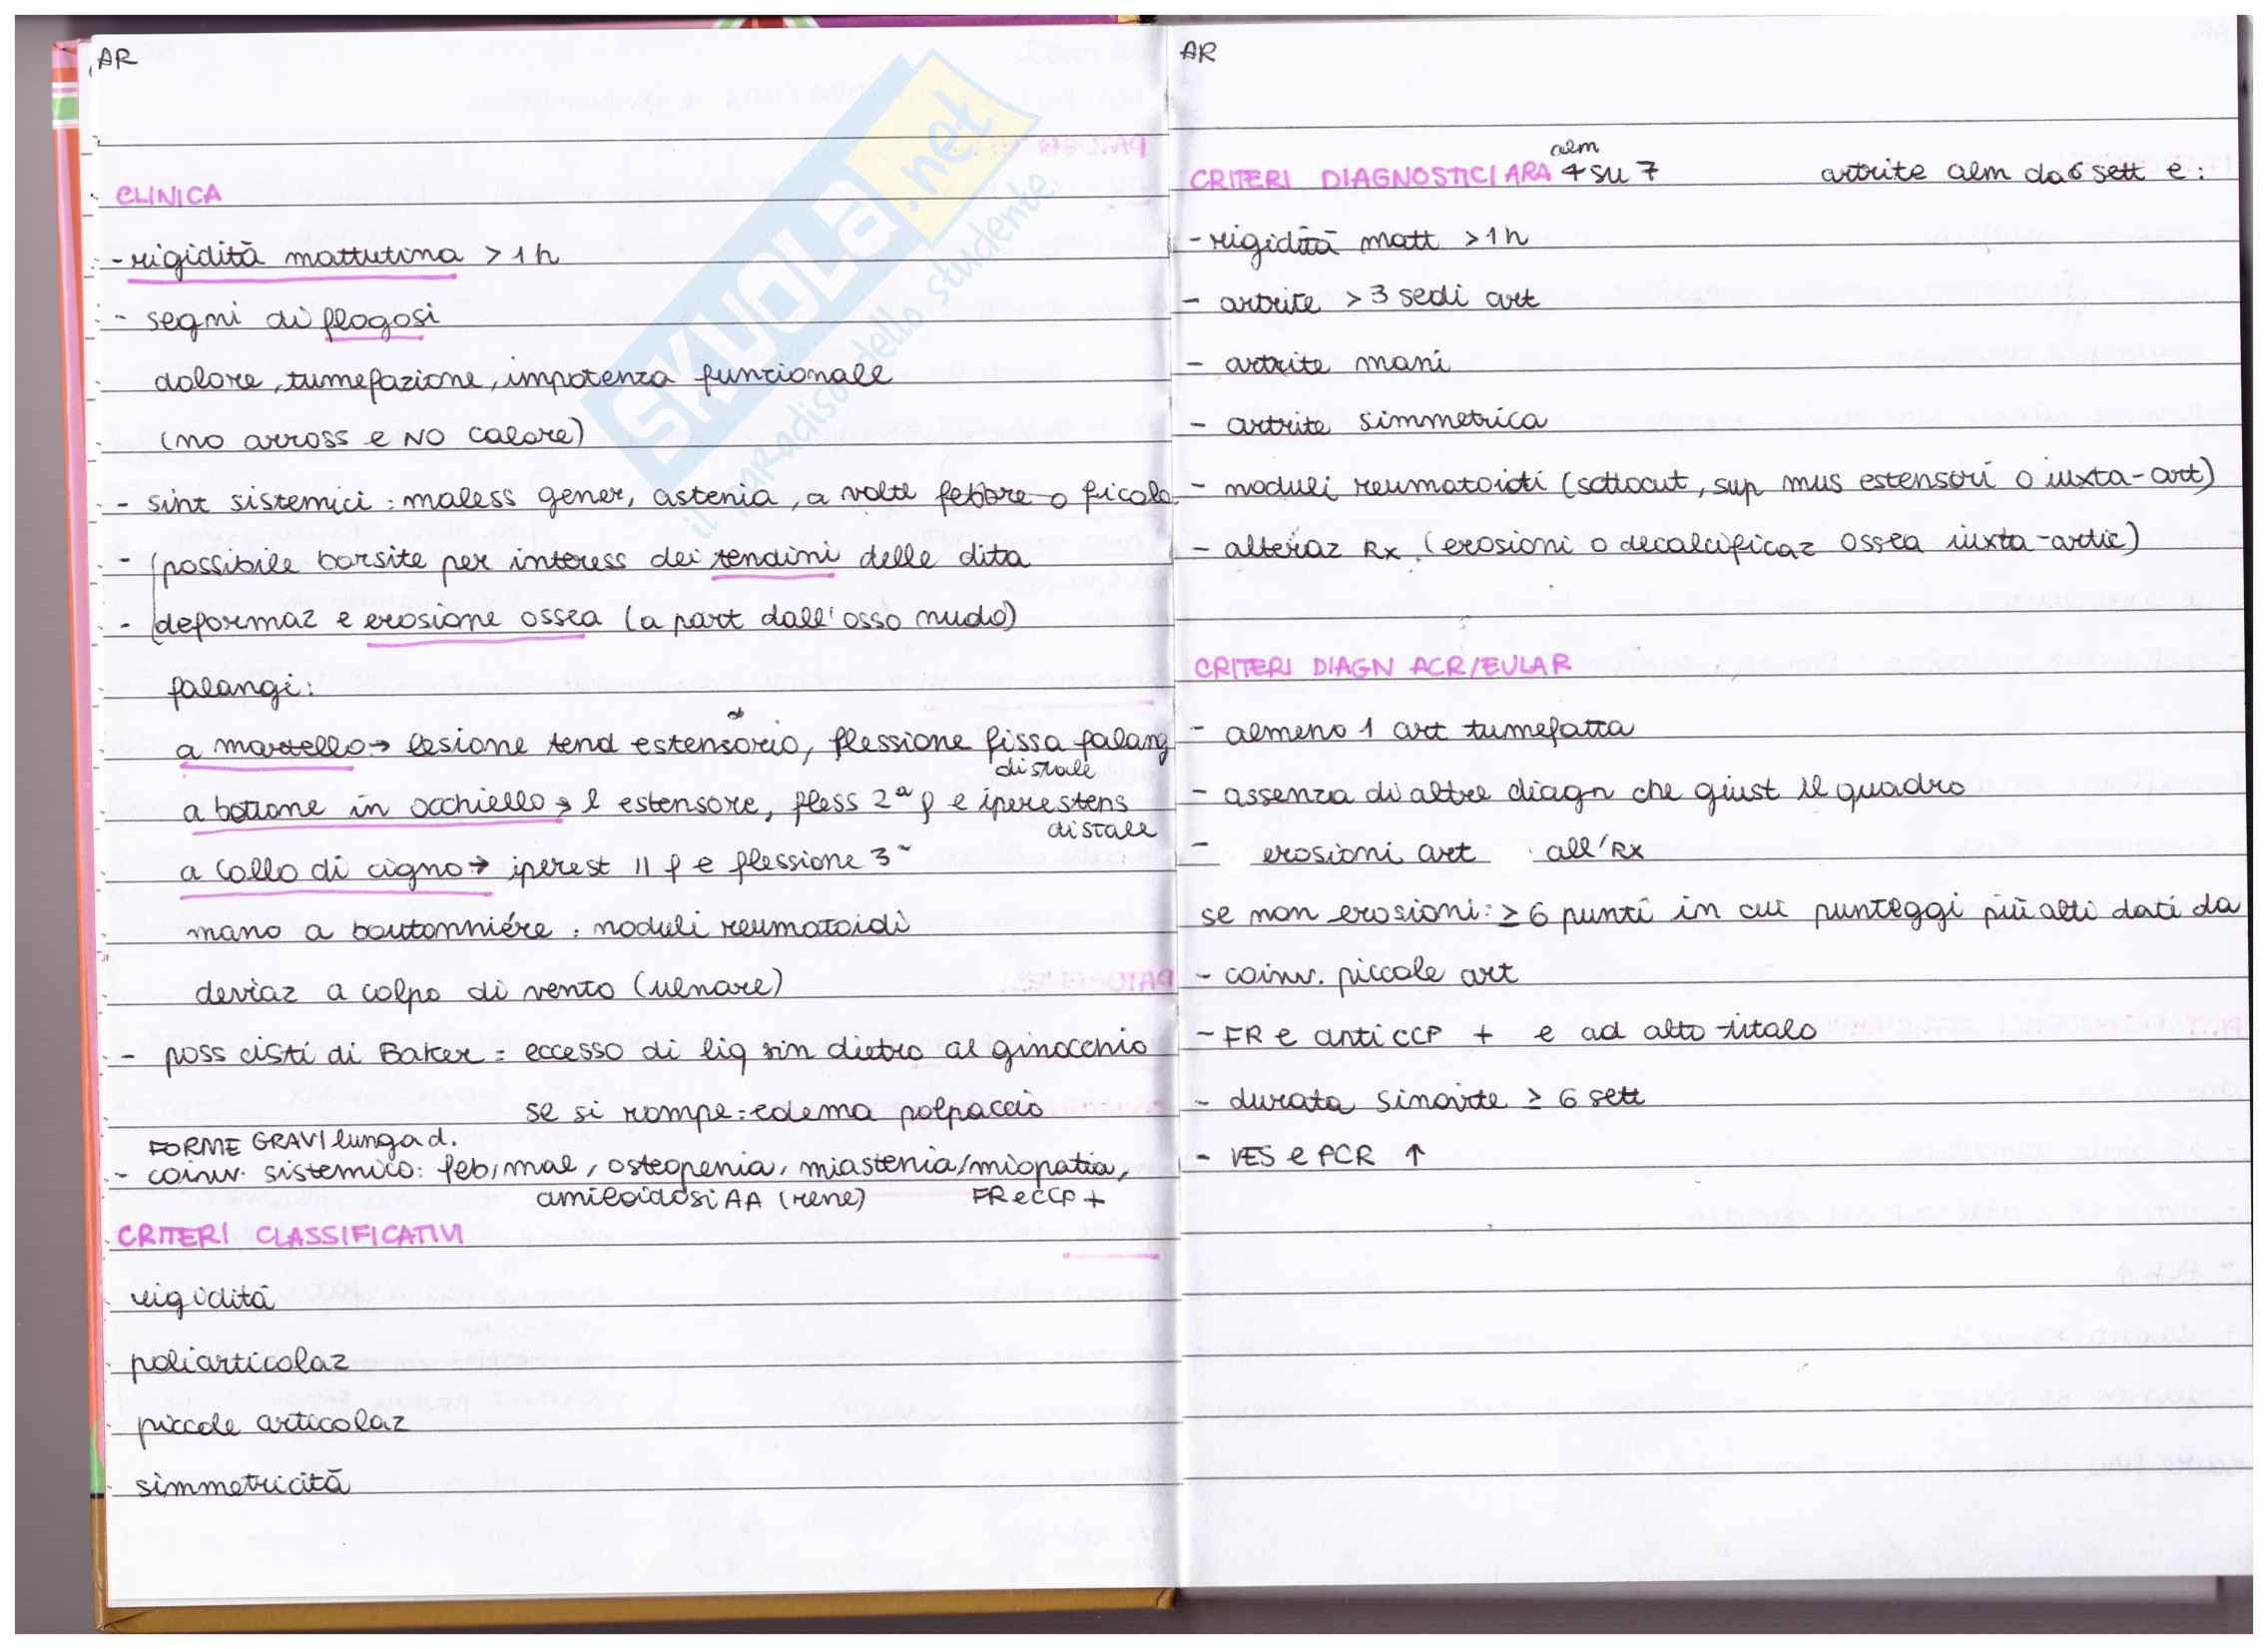 AR
CLINICA
- rigidità mattutina > 1h
- segni di flogosi
dolore, tumefazione, impotenza funzionale
(no arross e NO calore)
- sint sistemici: maless gener, astenia, a volte febbre o ficola
- (possibile borsite per interess dei tendini delle dita
- (deformaz e erosione ossea (a part dall'osso nudo)
falangi:
a martello → lesione tend estensorio, flessione fissa falang
distale
a bottone in occhiello → l estensore, fless 2ª f e iperestens
distale
a collo di cigno → iperest II f e flessione 3ª
mano a boutonniére: noduli reumatoidi
deviaz a colpo di vento (ulnare)
- poss cisti di Baker = eccesso di liq sin dietro al ginocchio
se si rompe = edema polpaccio
FORME GRAVI lunga d.
- coinv. sistemico: feb, mal, osteopenia, miastenia/miopatia,
amiloidosi AA (rene) FR e CCP +
CRITERI CLASSIFICATIVI
rigidità
poliarticolaz
piccole articolaz
simmetricità
AR
alm
CRITERI DIAGNOSTICI ARA 4 SU 7 artrite alm da 6 sett e:
- rigidità matt > 1h
- artrite > 3 sedi art
- artrite mani
- artrite simmetrica
- noduli reumatoidi (sottocut, sup mus estensori o iuxta-art)
- alteraz Rx (erosioni o decalcificaz ossea iuxta-artic)
CRITERI DIAGN ACR/EULAR
- almeno 1 art tumefatta
- assenza di altre diagn che giust il quadro
- erosioni art all'Rx
se non erosioni: ≥ 6 punti in cui punteggi più alti dati da
- coinv. piccole art
- FR e anti CCP + e ad alto titolo
- durata sinovite ≥ 6 sett
- VES e PCR ↑
SKUOLA.net
il paradiso dello studente